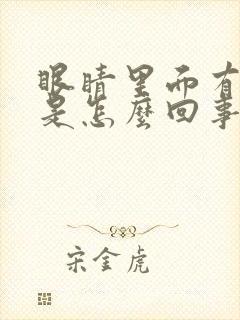 眼睛里而有
是怎麼回事
宋金虎